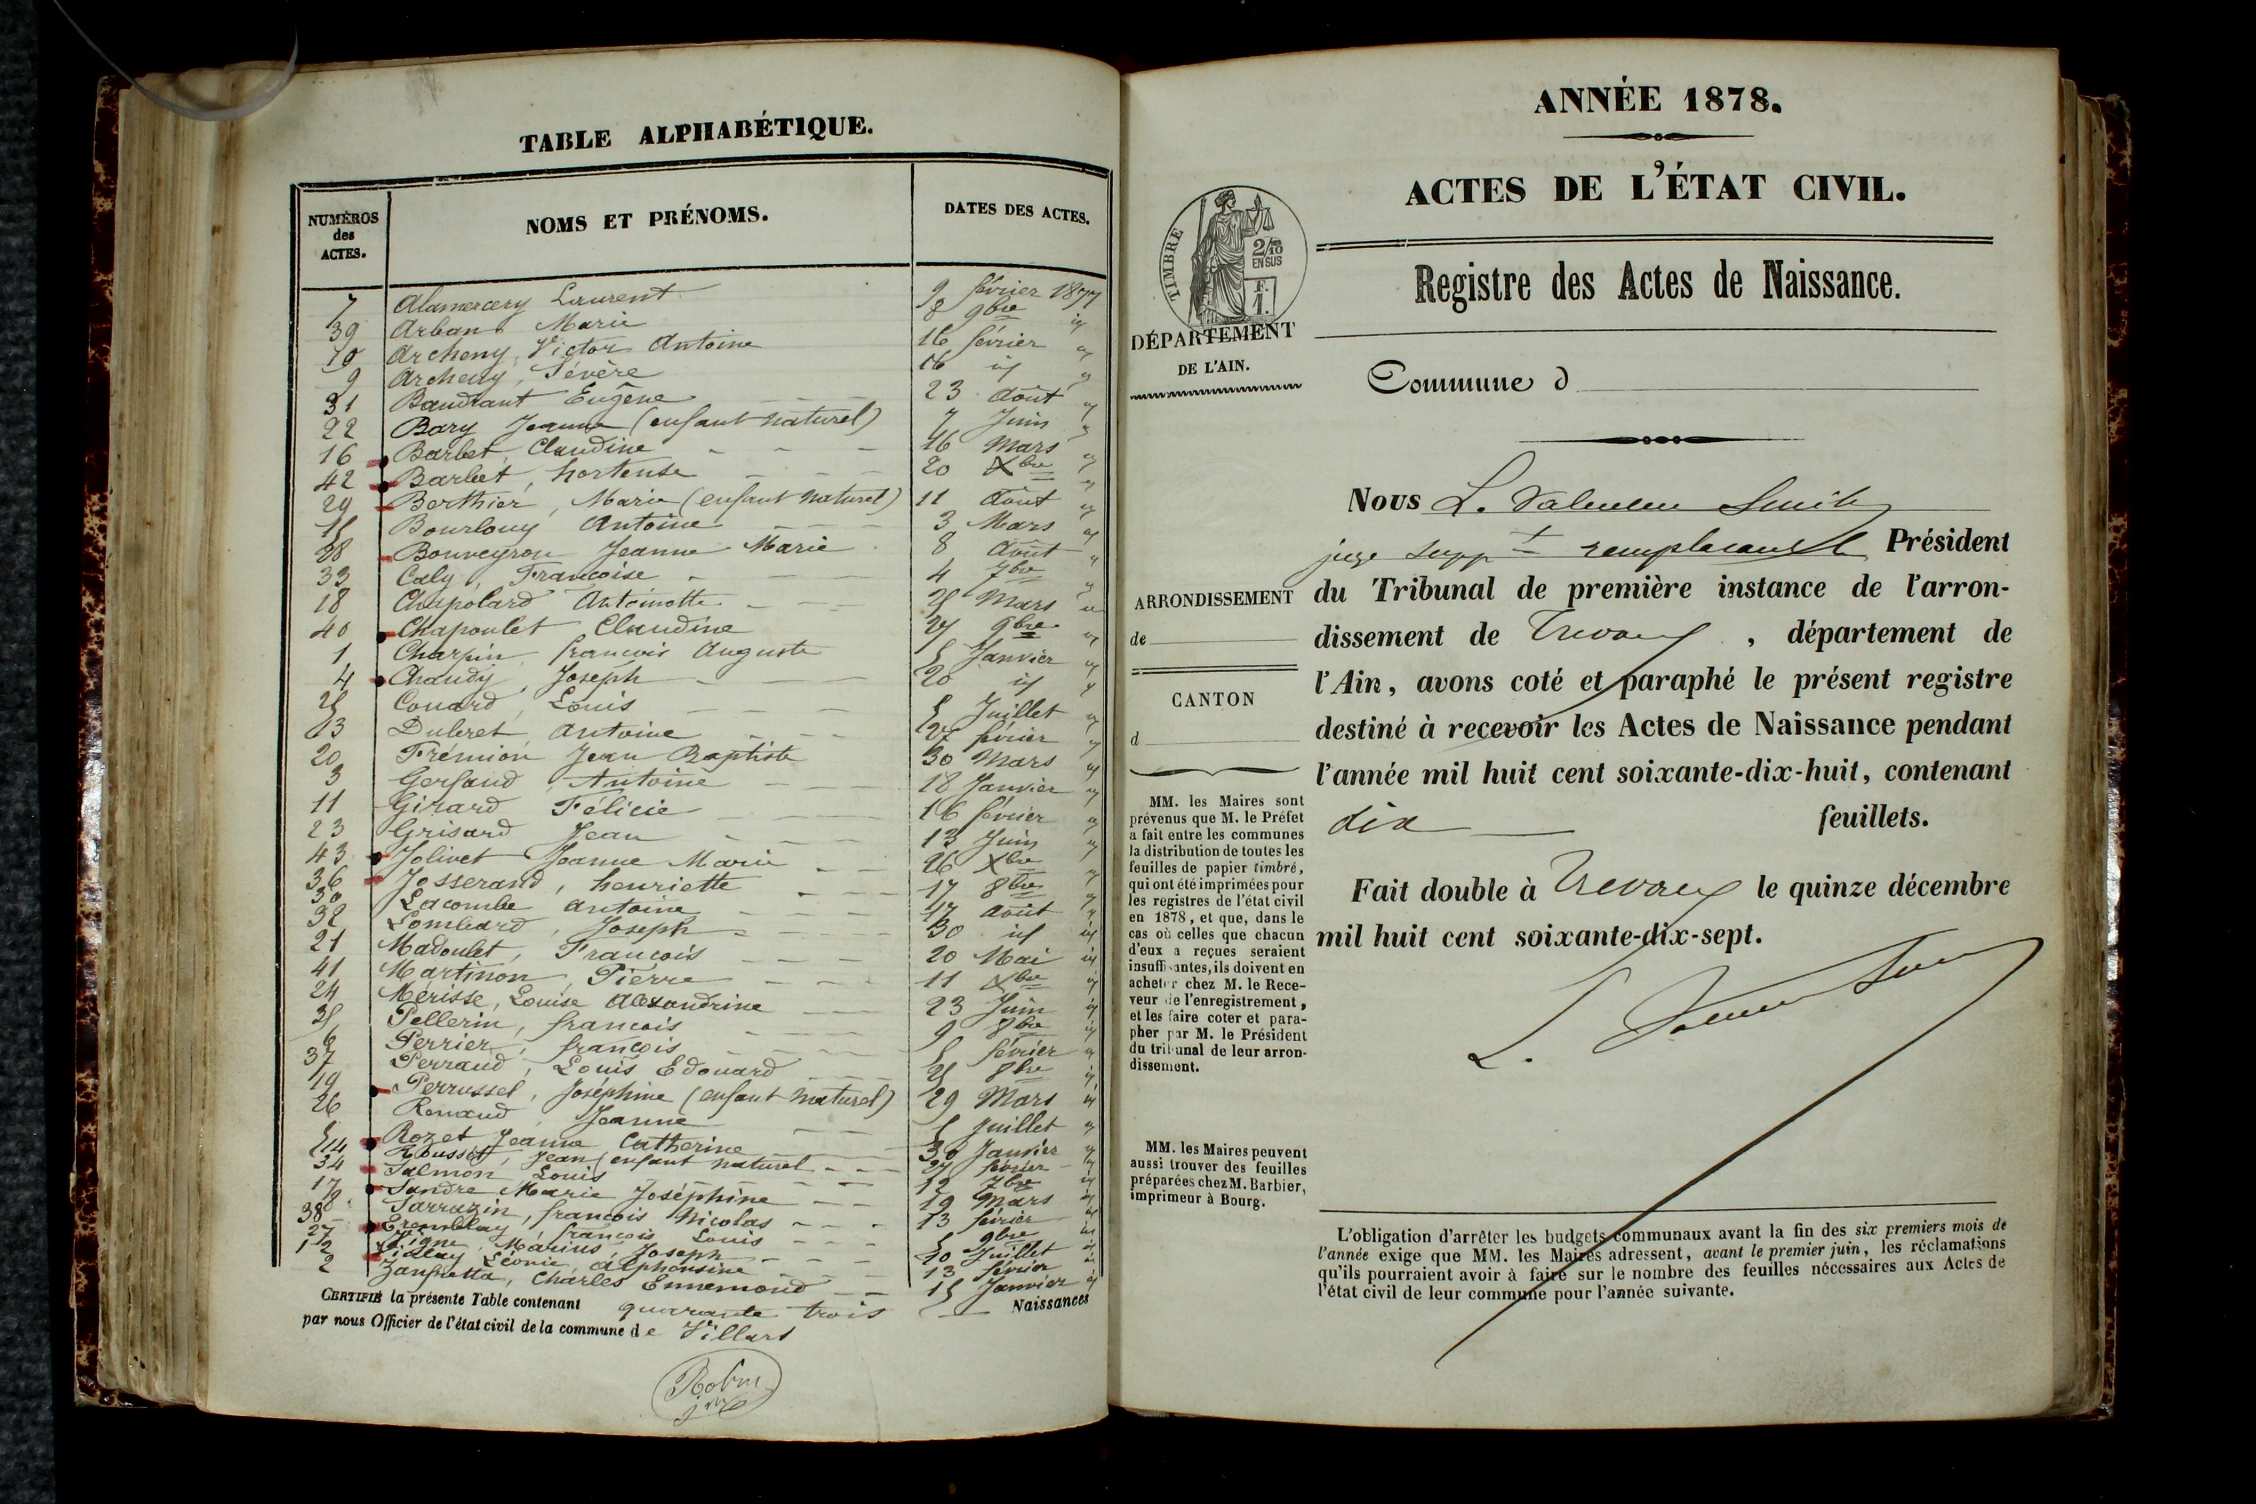 TABLE ALPHABÉTIQUE.
NUMÉROS des ACTES. NOMS ET PRÉNOMS. DATES DES ACTES.
7 Alamercery Laurent 9 février 1877
39 Arban Marie 8 9bre id
10 Archeny, Victor Antoine 16 février id
9 Archeny, Sévère 16 id id
31 Baudrant Eugène 23 Août id
22 Bary Jeanne (enfant naturel) 7 Juin id
16 Barbet, Claudine 16 Mars id
42 Barbet, hortense 20 Xbre id
29 Berthier, Marie (enfant naturel) 11 Août id
15 Bourlouy Antoine 3 Mars id
28 Bouveyron Jeanne Marie 8 Août id
33 Caly, Françoise 4 7bre id
18 Chapolard Antoinette 25 Mars id
40 Chapoulet Claudine 27 9bre id
1 Charpin, françois Auguste 5 Janvier id
4 Chaudy, Joseph 20 id id
25 Couard, Louis 5 Juillet id
13 Dubret, Antoine 27 février id
20 Frémion Jean Baptiste 30 Mars id
3 Gerfaud, Antoine 18 Janvier id
11 Girard Félicie 16 février id
23 Grisard Jean 13 Juin id
43 Jolivet Jeanne Marie 26 Xbre id
36 Josserand, henriette 17 8bre id
30 Lacombe antoine 17 Août id
32 Lombard, Joseph 30 id id
21 Madoulet, François 20 Mai id
41 Martinon, Pierre 11 Xbre id
24 Mérisse, Louise Alexandrine 23 Juin id
35 Pellerin, françois 9 8bre id
6 Perrier, françois 5 février id
37 Perraud, Louis Edouard 25 8bre id
19 Perrussel, Joséphine (enfant naturel) 29 Mars id
26 Renaud, Jeanne 5 Juillet id
5 Rozet Jeanne Catherine 30 Janvier id
14 Rousset, Jean (enfant naturel 27 février id
34 Salmon Louis 12 7bre id
17 Sandre Marie Joséphine 19 Mars id
8 Sarrazin, françois Nicolas 13 février id
38 françois Louis 5 9bre id
27 Vigne, Marius, Joseph 10 Juillet id
12 Léonie, Alphonsine 13 février id
2 Zanfretta, Charles Ennemond 15 Janvier id
CERTIFIÉ la présente Table contenant quarante trois Naissances
par nous Officier de l'état civil de la commune de Villars
Robin
ANNÉE 1878.
ACTES DE L'ÉTAT CIVIL.
TIMBRE
2/10 EN SUS
F. 1.
Registre des Actes de Naissance.
DÉPARTEMENT
DE L'AIN.
Commune d
Nous L. Valentin Smith
juge suppt remplacant le Président
du Tribunal de première instance de l'arron-
dissement de Trevoux, département de
l'Ain, avons coté et paraphé le présent registre
destiné à recevoir les Actes de Naissance pendant
l'année mil huit cent soixante-dix-huit, contenant
dix feuillets.
Fait double à Trevoux le quinze décembre
mil huit cent soixante-dix-sept.
ARRONDISSEMENT
de
CANTON
d
MM. les Maires sont
prévenus que M. le Préfet
a fait entre les communes
la distribution de toutes les
feuilles de papier timbré,
qui ont été imprimées pour
les registres de l'état civil
en 1878, et que, dans le
cas où celles que chacun
d'eux a reçues seraient
insuffisantes, ils doivent en
acheter chez M. le Rece-
veur de l'enregistrement,
et les faire coter et para-
pher par M. le Président
du tribunal de leur arron-
dissement.
MM. les Maires peuvent
aussi trouver des feuilles
préparées chez M. Barbier,
imprimeur à Bourg.
L'obligation d'arrêter les budgets communaux avant la fin des six premiers mois de
l'année exige que MM. les Maires adressent, avant le premier juin, les réclamations
qu'ils pourraient avoir à faire sur le nombre des feuilles nécessaires aux Actes de
l'état civil de leur commune pour l'année suivante.